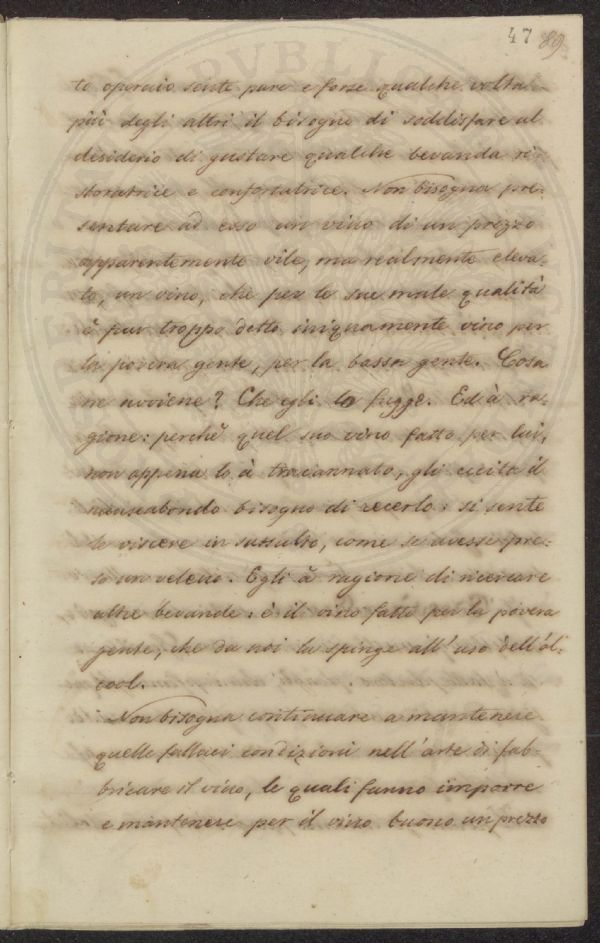 47 89
to operaio sente pure e forse qualche volta
più degli altri il bisogno di soddisfare al
desiderio di gustare qualche bevanda ri-
storatrice e confortatrice. Non bisogna pre-
sentare ad esso un vino di un prezzo
apparentemente vile, ma realmente eleva-
to, un vino, che per le sue male qualità
è pur troppo detto iniquamente vino per
la povera gente, per la bassa gente. Cosa
ne avviene? Che egli lo fugge. Ed à ra-
gione: perchè quel suo vino fatto per lui,
non appena lo à tracannato, gli eccita il
nauseabondo bisogno di recerlo: si sente
le viscere in sussulto, come se avesse pre-
so un veleno. Egli à ragione di ricercare
altre bevande: è il vino fatto per la povera
gente, che da noi la spinge all'uso dell'al-
cool.
Non bisogna continuare a mantenere
quelle fallaci condizioni nell'arte di fab-
bricare il vino, le quali fanno imporre
e mantenere per il vino buono un prezzo